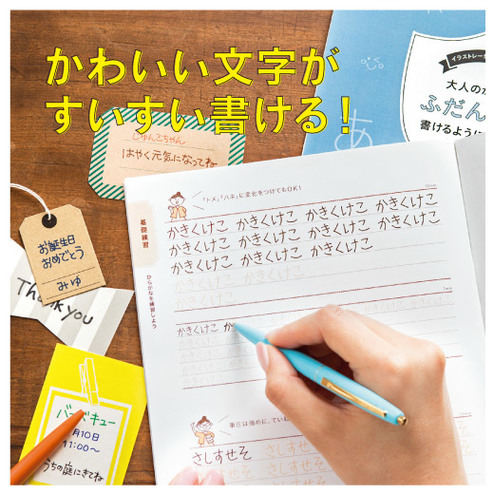 かわいい文字が
すいすい書ける!
イラストレー
大人の
ふだん
書けるように
あ
じゅんこちゃん
はやく元気になってね
お誕生日
おめでとう
みゆ
Thank you
バーベキュー
月10日
11:00〜
うちの庭にきてね
「トメ」「ハネ」に変化をつけてもOK!
基礎練習
ひらがなを練習しよう
かきくけこ かきくけこ かきくけこ かきくけこ
かきくけこ かきくけこ かきくけこ かきくけこ
かきくけこ かきくけこ かきくけこ
かきくけこ か
さしすせそ さしすせそ
さしすせそ